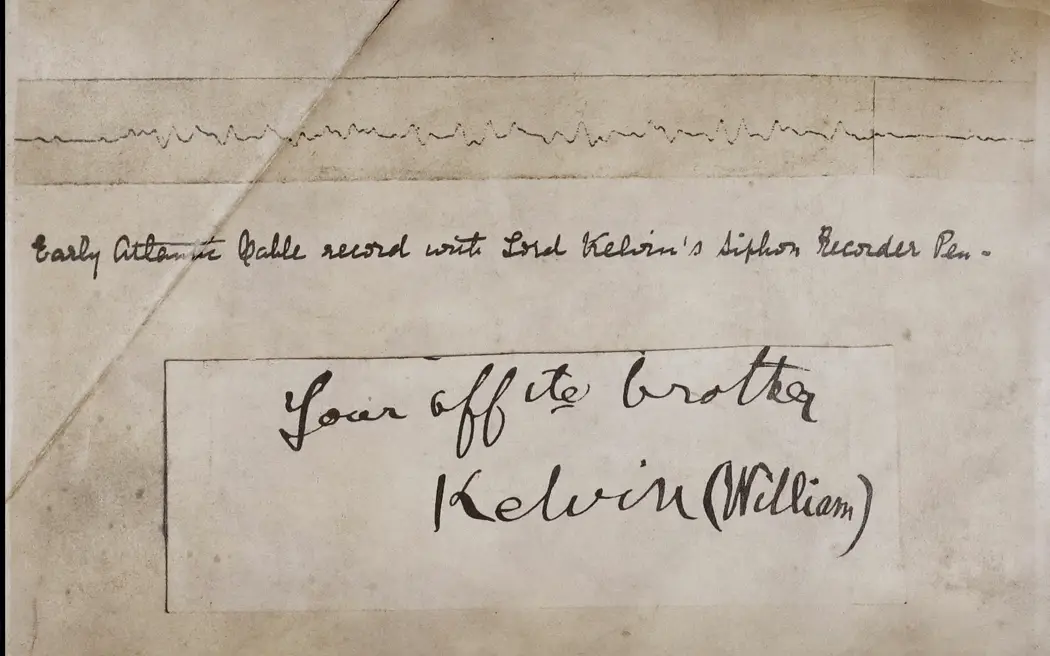 Early Atlantic Cable record with Lord Kelvin's Siphon Recorder Pen -
Your affte brother
Kelvin (William)